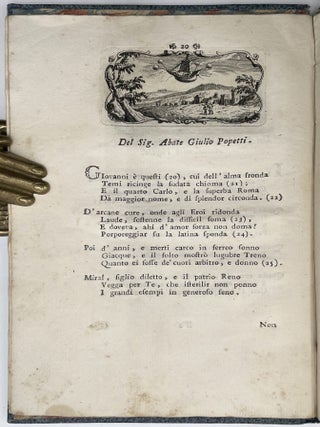 20
Del Sig. Abate Giulio Popetti.
GIovanni è questi (20), cui dell'alma fronda
Temi ricinge la sudata chioma (21);
E il quarto Carlo, e la superba Roma
Dà maggior nome, e di splendor circonda. (22)
D'arcane cure, onde agli Eroi ridonda
Laude, sostenne la difficil soma (23),
E dovera, ahi d'amor forza non doma!
Porporeggiar su la latina sponda (24).
Poi d'anni, e merti carco in ferreo sonno
Giacque, e il folto mostrò lugubre Treno
Quanto ei fosse de'cuori arbitro, e donno (25).
Mira! figlio diletto, e il patrio Reno
Vegga per Te, che isterilir non ponno
I grandi esempi in generoso seno.
Non